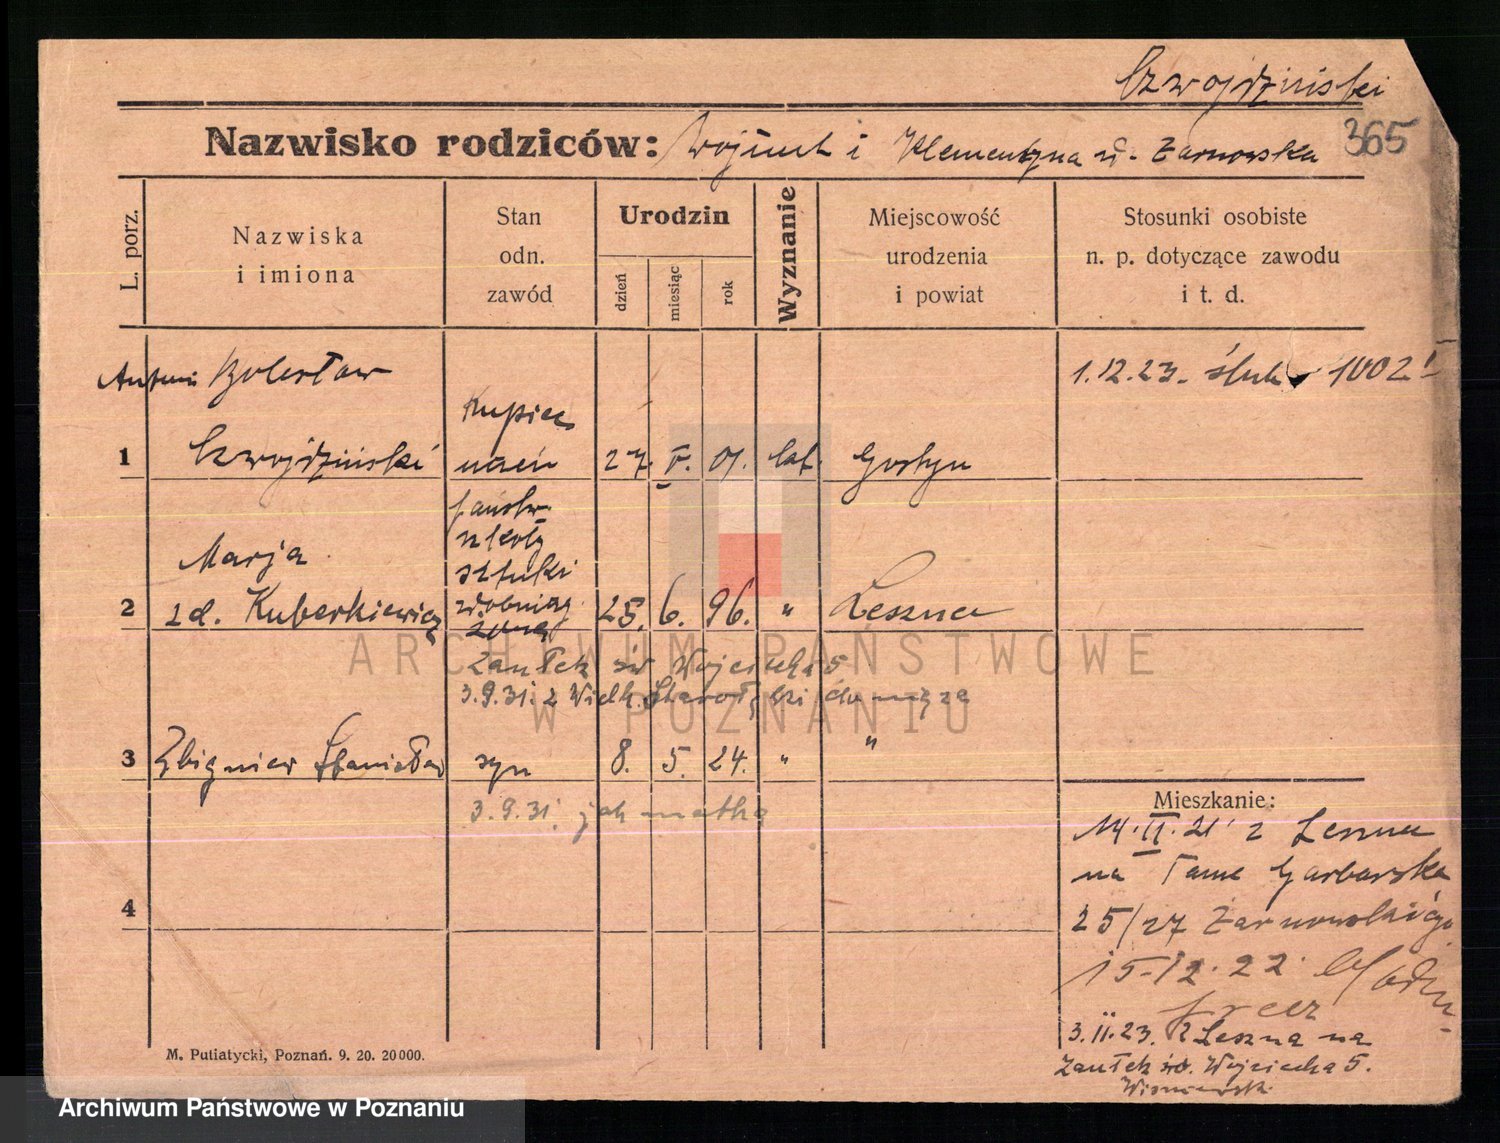 Czwojdziński
Nazwisko rodziców: i Klementyna ż. Żarnowska 365
L. porz.
Nazwiska
i imiona
Stan
odn.
zawód
Urodzin
dzień
miesiąc
rok
Wyznanie
Miejscowość
urodzenia
i powiat
Stosunki osobiste
n. p. dotyczące zawodu
i t. d.
Antoni Bolesław
1.12.23. ślub 1002
Kupiec
1 Czwojdziński uczeń 27. V. 01. kat. Gostyn
państw.
szkoły
Marja sztuki
zdobniczej
2 zd. Kuberkiewicz żona 25. 6. 96. " Leszna
Zaułek św Wojciecha 5
3.9.31. z Wielk. Starołęki do męża
3 Zbigniew Stanisław syn 8. 5. 24. " "
3.9.31. jak matka
4
Mieszkanie:
14.II.21 z Leszna
na Tamę Garbarską
25/27 Żarnowskiego
15-12.22.
3.II.23. z Leszna na
Zaułek św. Wojciecha 5.
M. Putiatycki, Poznań. 9. 20. 20000.
ARCHIWUM PAŃSTWOWE
W POZNANIU
Archiwum Państwowe w Poznaniu